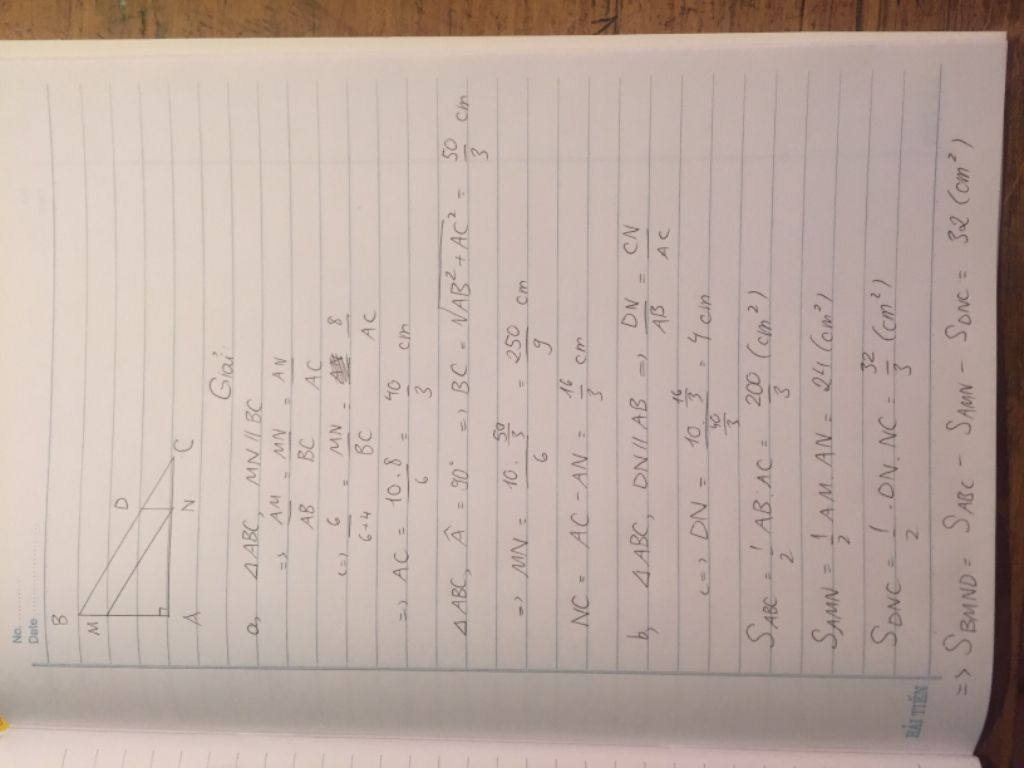 No.
Date
B
M
D
A
N
C
Giải:
a, ΔABC, MN // BC
=> AM/AB = MN/BC = AN/AC
<=> 6/6+4 = MN/BC = 8/AC
=> AC = 10.8/6 = 40/3 cm
ΔABC, Â = 90° => BC = √AB² + AC² = 50/3 cm
=> MN = 10. 50/3 / 6 = 250/9 cm
NC = AC - AN = 16/3 cm
b, ΔABC, DN // AB => DN/AB = CN/AC
<=> DN = 10. 16/3 / 40/3 = 4 cm
S_ABC = 1/2 AB.AC = 200/3 (cm²)
S_AMN = 1/2 AM.AN = 24 (cm²)
S_DNC = 1/2 . DN.NC = 32/3 (cm²)
=> S_BMND = S_ABC - S_AMN - S_DNC = 32 (cm²)
HẢI TIẾN